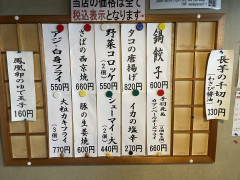 当店の価格は全て
税込表示となります。
長芋の千切り
(わさび醤油)
330円
鍋餃子
660円
タコの唐揚げ
820円
野菜コロッケ
(2個)
550円
さばの西京焼
660円
アジ・白身フライ
550円
イカの塩辛
330円
シューマイ
440円
豚の生姜焼
600円
大粒カキフライ
770円
鳳凰卵のゆで玉子
160円